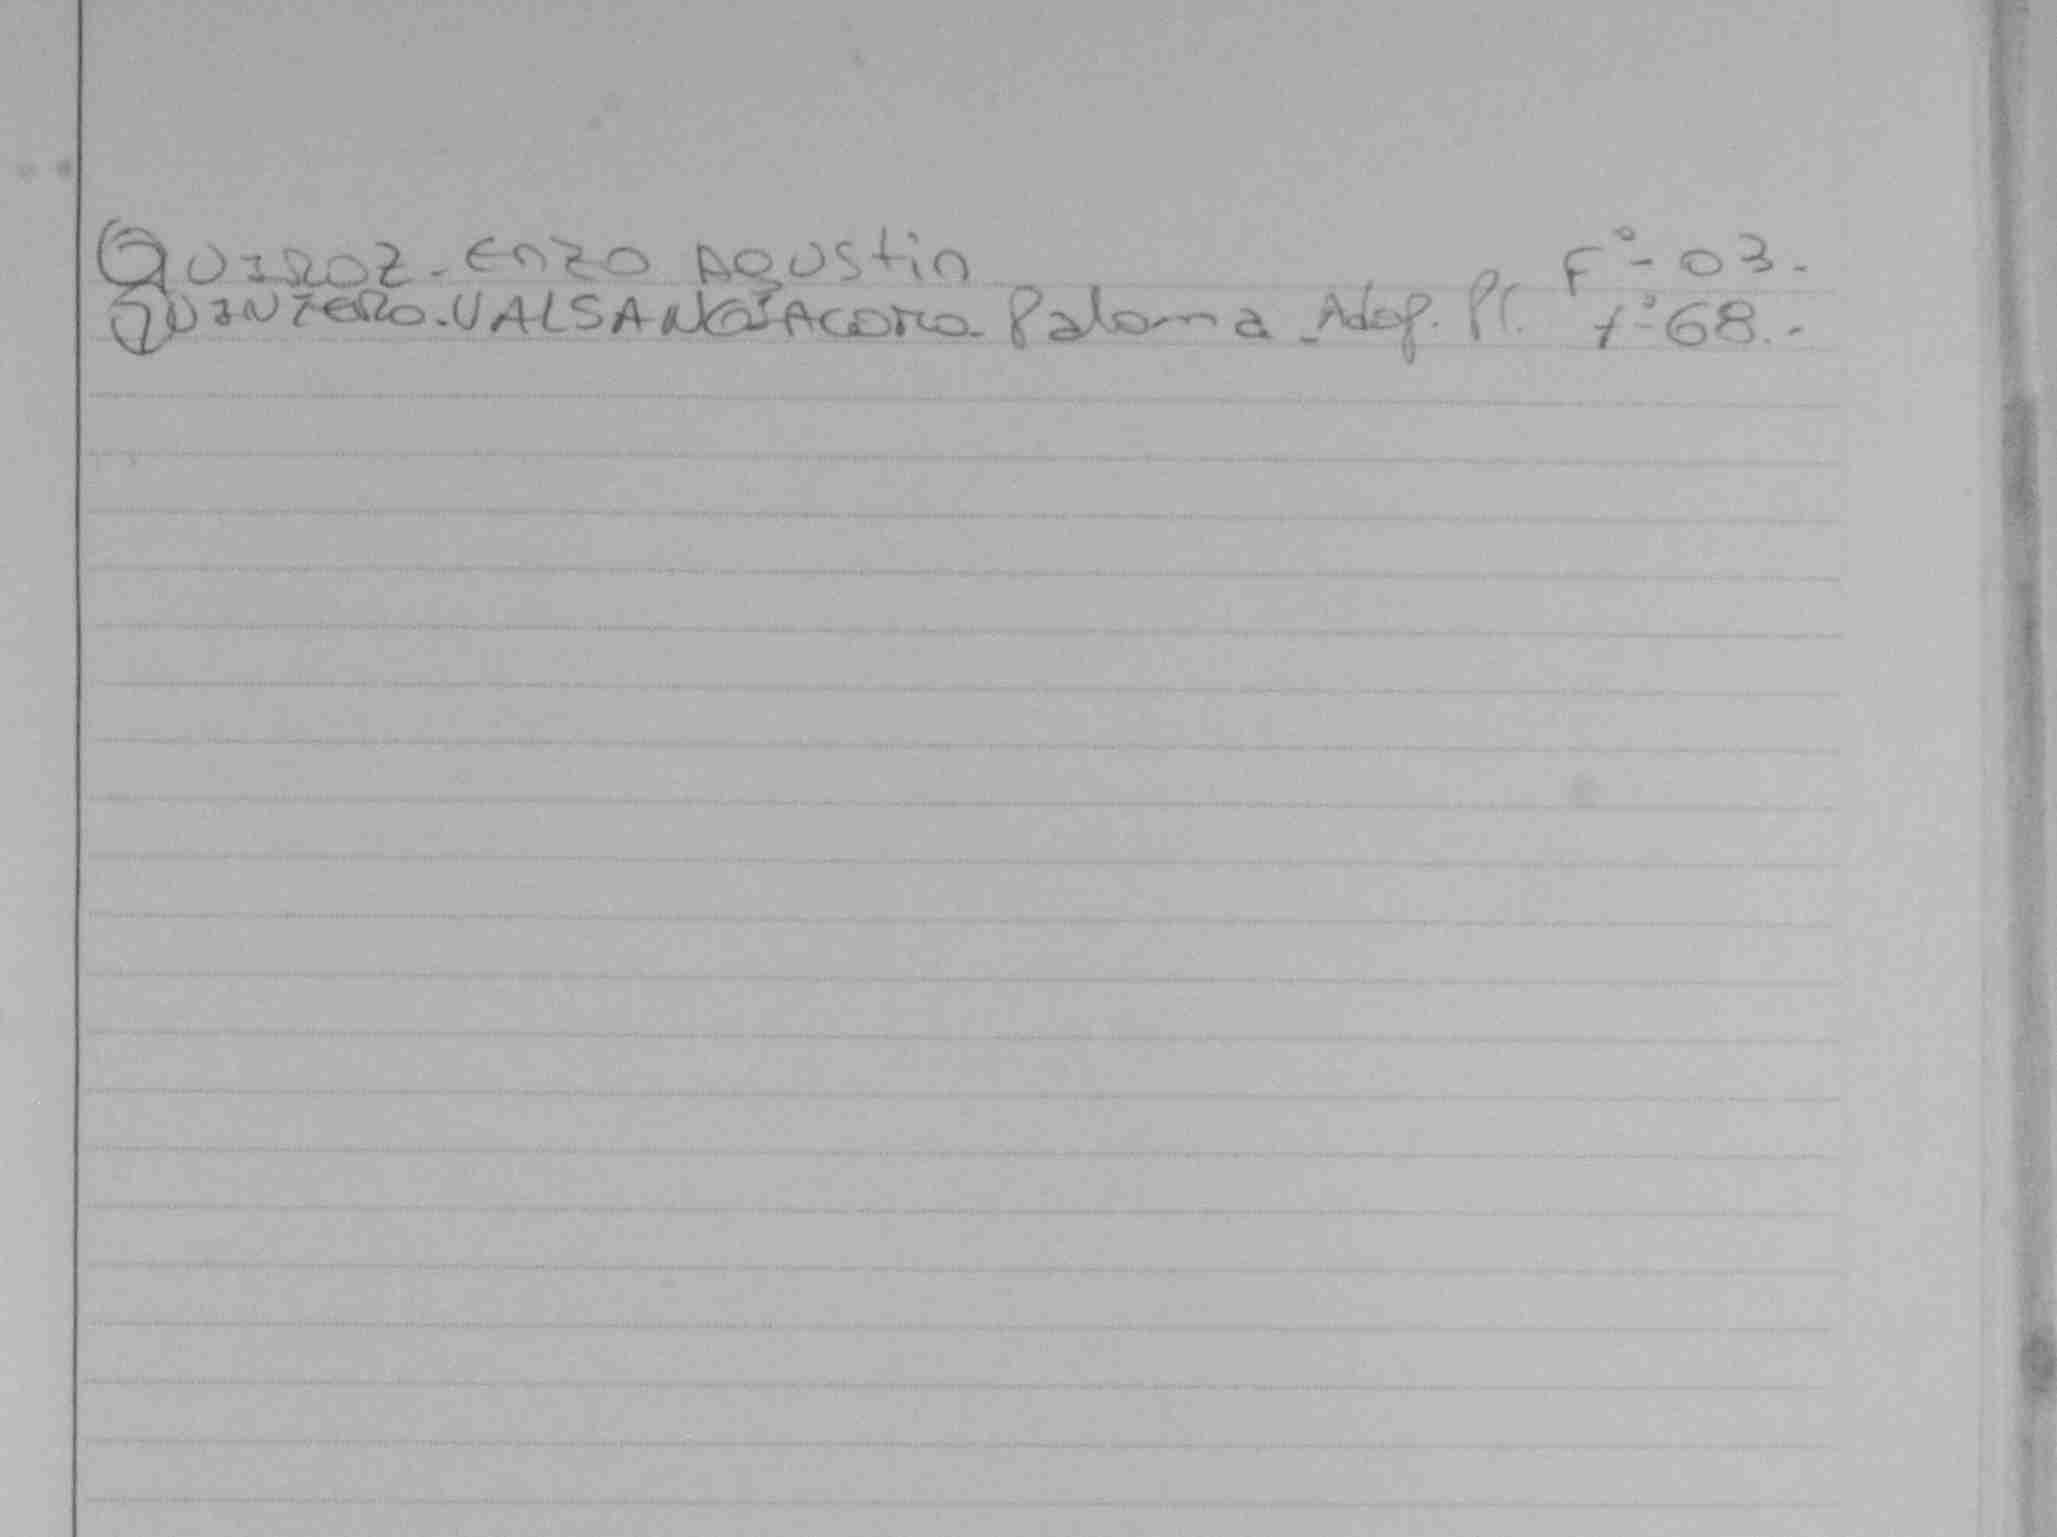 QUIROZ. Enzo Agustin F°- 03.
QUINZERO. VALSANGIACOMO. Paloma - Adop. Pl. F° 68.-